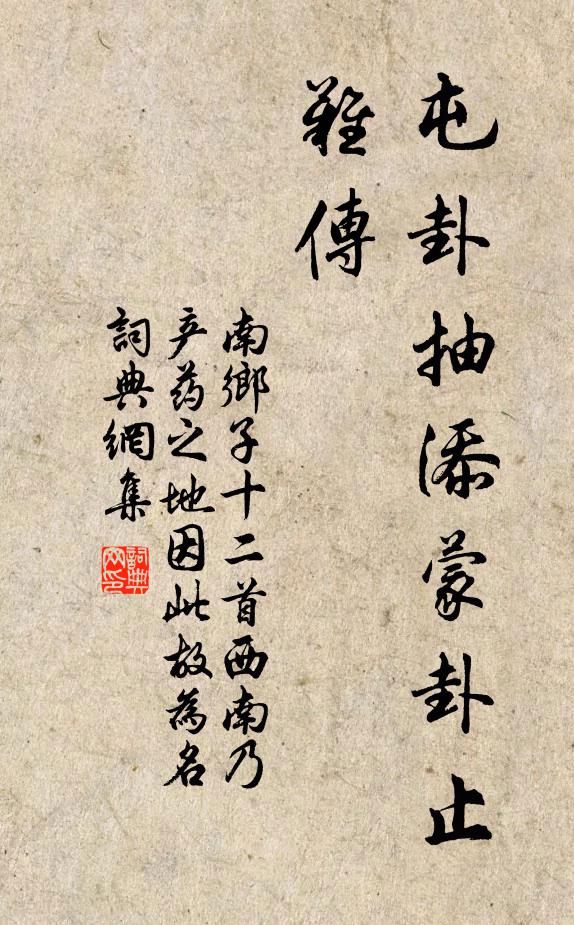 屯卦抽添蒙卦止
難傳
南鄉子十二首西南乃
产药之地因此故為名
詞典網集
詞典
网印